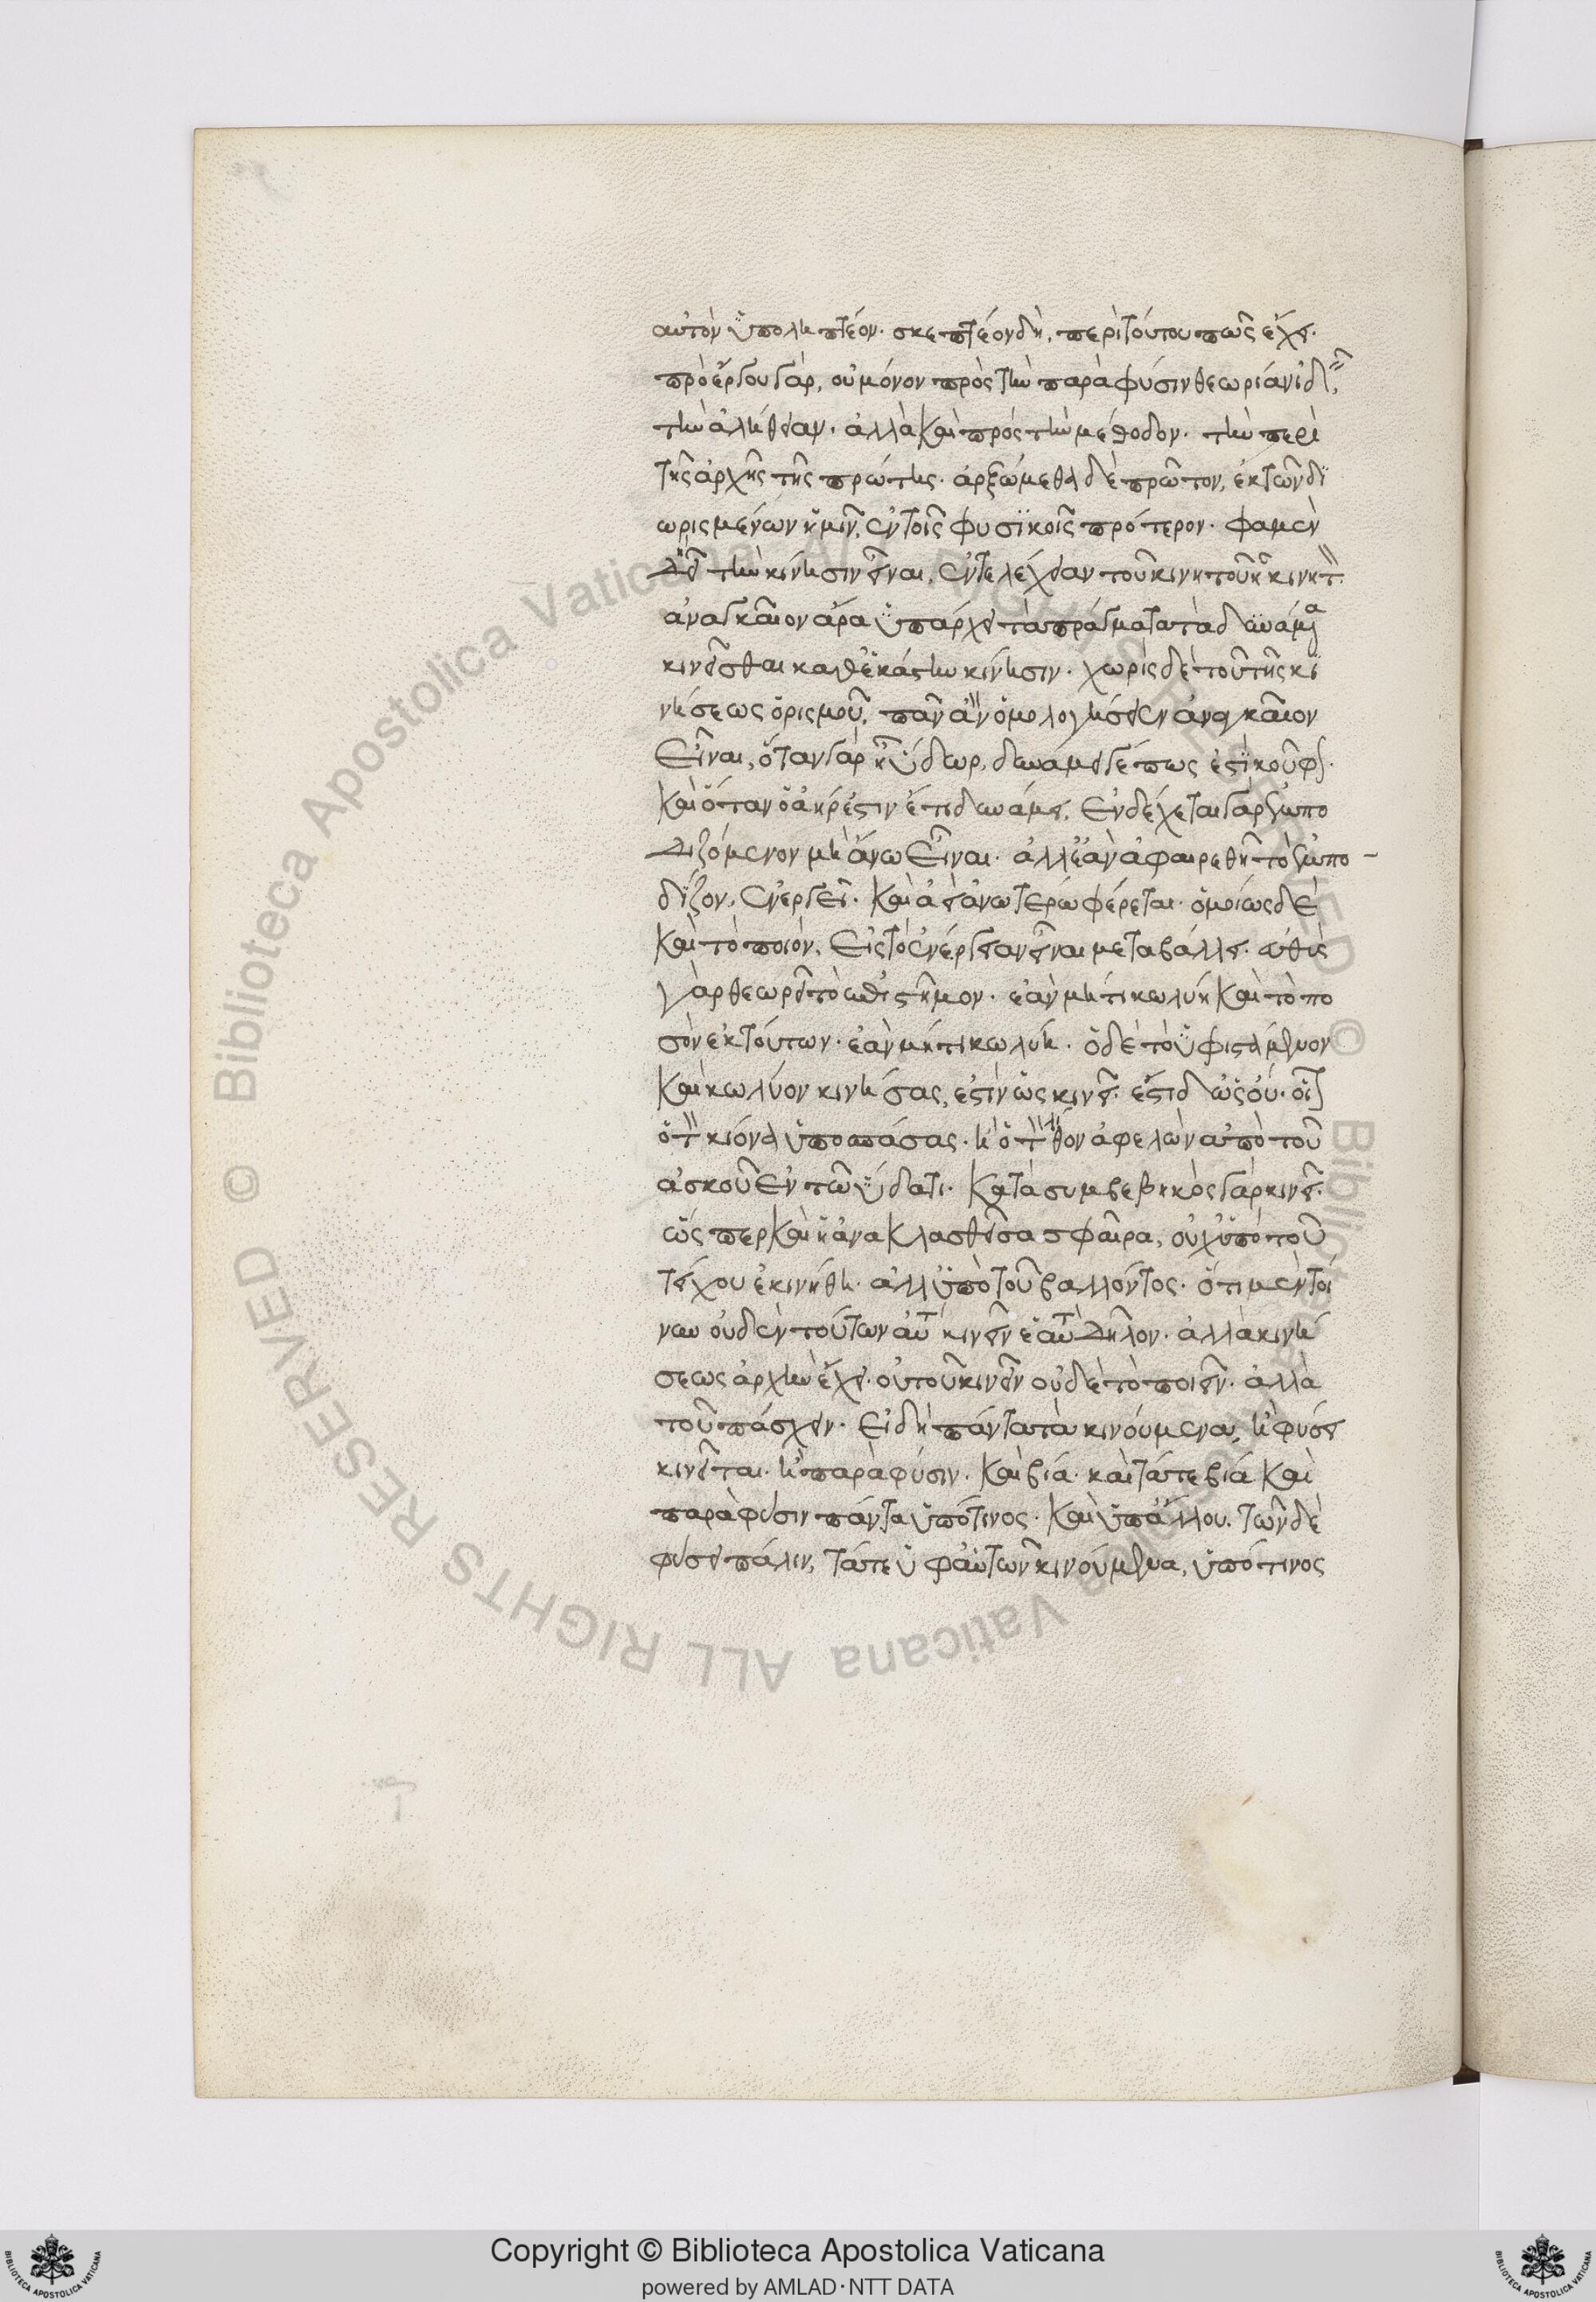 αὐτὸν ὑποληπτέον· σκεπτέον δὴ, περὶ τούτου πῶς ἔχει·
πρὸ ἔργου γὰρ, οὐ μόνον πρὸς τὴν παρὰ φύσιν θεωρίαν ἰδεῖν
τὴν ἀλήθειαν· ἀλλὰ καὶ πρὸς τὴν μέθοδον· τὴν περὶ
τῆς ἀρχῆς τῆς πρώτης· ἀρξώμεθα δὲ πρῶτον, ἐκ τῶν δι
ωρισμένων ἡμῖν, ἐν τοῖς φυσικοῖς πρότερον· φαμὲν
δὴ τὴν κίνησιν εἶναι, ἐντελέχειαν τοῦ κινητοῦ ᾗ κινητ
ἀναγκαῖον ἄρα ὑπάρχει τὰ πράγματα τὰ δυνάμενα
κινεῖσθαι καθ' ἑκάστην κίνησιν· χωρὶς δὲ τοῦ τῆς κι
νήσεως ὁρισμοῦ, πᾶν ἂν ὁμολογήσειεν ἀναγκαῖον
εἶναι, ὅταν γὰρ ᾖ ὕδωρ, δυνάμει γέ πως ἐστὶ κοῦφ
καὶ ὅταν ὁ ἀήρ ἐστιν ἔτι δυνάμει, ἐνδέχεται γὰρ ἐμπο
διζόμενον μὴ ἄνω εἶναι· ἀλλ' ἐὰν ἀφαιρεθῇ τὸ ἐμπο-
δίζον, ἐνεργεῖ· καὶ ἀεὶ ἀνωτέρω φέρεται· ὁμοίως δὲ
καὶ τὸ ποιὸν, εἰς τὸ ἐνέργειαν εἶναι μεταβάλλει· εὐθὺς
γὰρ θεωρεῖ τὸ ἐπιστῆμον· ἐὰν μή τι κωλύῃ καὶ τὸ πο
σὸν ἐκ τούτων· ἐὰν μή τι κωλύῃ· ὁ δὲ τὸ ὑφιστάμενον
καὶ κωλύον κινήσας, ἔστιν ὡς κινεῖ· ἔστι δ' ὡς οὔ· οἷ
ὁ τ κίονα ὑποσπάσας· ἢ ὁ τ λίθον ἀφελὼν ἀπὸ τοῦ
ἀσκοῦ ἐν τῷ ὕδατι· κατὰ συμβεβηκὸς γὰρ κινεῖ·
ὥσπερ καὶ ἡ ἀνακλασθεῖσα σφαῖρα, οὐχ ὑπὸ τοῦ
τείχου ἐκινήθη· ἀλλ' ὑπὸ τοῦ βάλλοντος· ὅτι μὲν τοί
νυν οὐδὲν τούτων αὐτ κινεῖν ἑαυτ δῆλον· ἀλλὰ κινή
σεως ἀρχὴν ἔχει· οὐ τοῦ κινεῖν οὐδὲ τὸ ποιεῖν· ἀλλὰ
τοῦ πάσχειν· εἰ δὴ πάντα τὰ κινούμενα, ἢ φύσει
κινεῖται· ἢ παρὰ φύσιν· καὶ βίᾳ· καὶ τά τε βίᾳ καὶ
παρὰ φύσιν πάντα ὑπό τινος· καὶ ὑπ' ἄλλου, τῶν δὲ
φύσει πάλιν, τά τε ὑφ' αὑτῶν κινούμενα, ὑπό τινος
Biblioteca Apostolica Vaticana ALL RIGHTS RESERVED ©
Copyright © Biblioteca Apostolica Vaticana
powered by AMLAD·NTT DATA